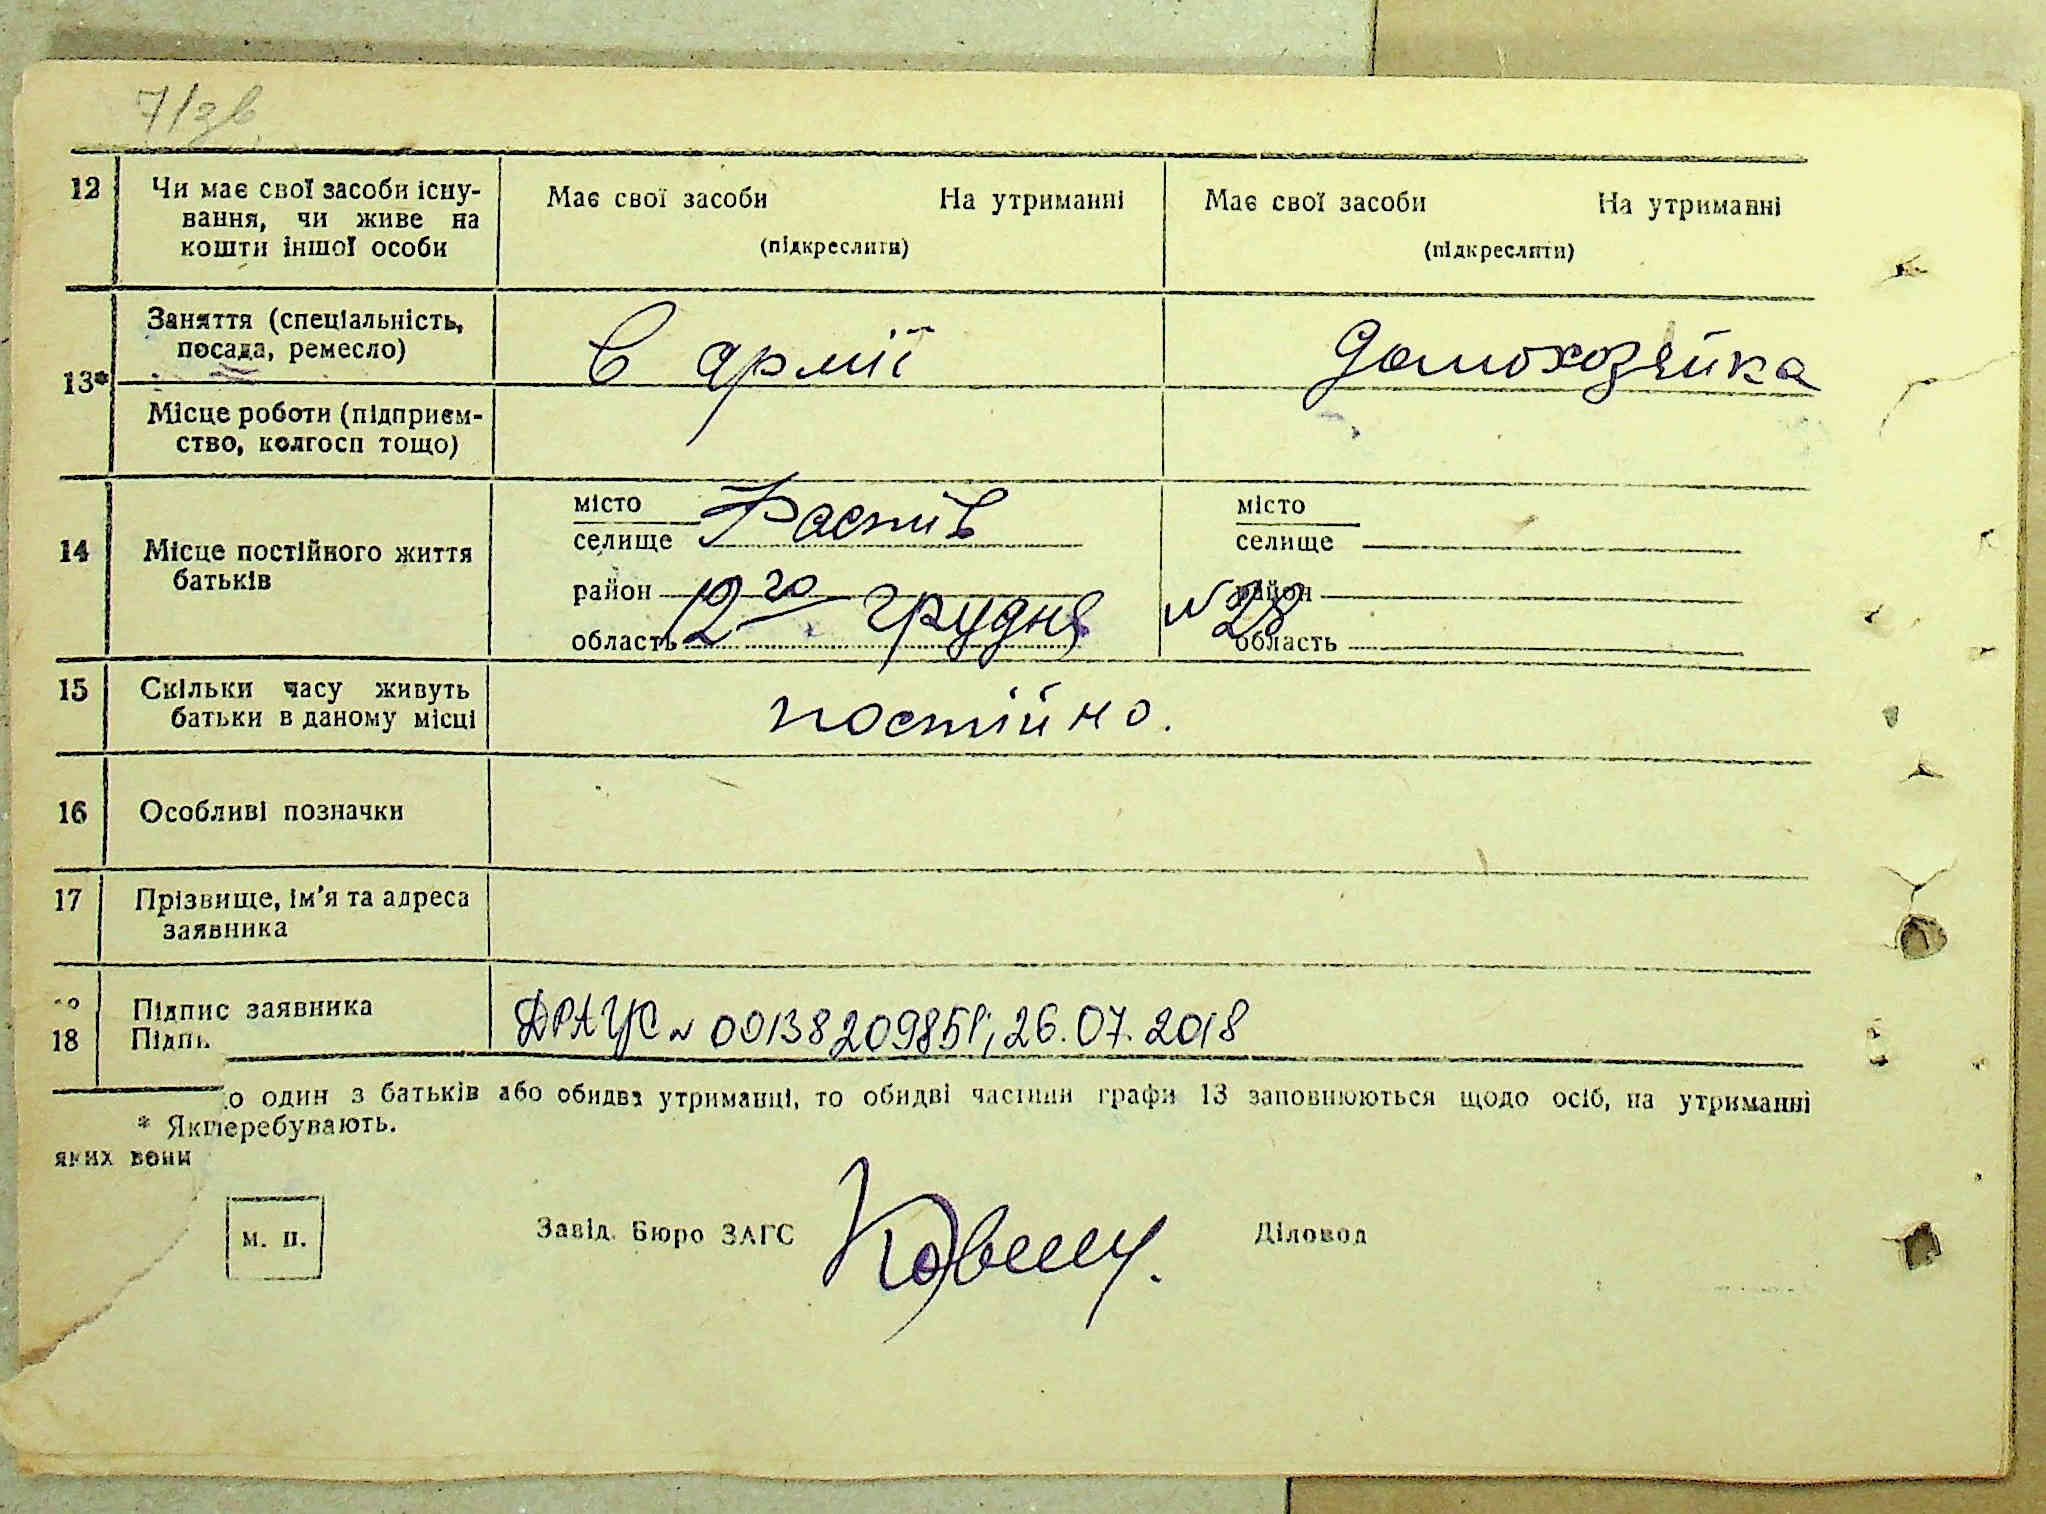 7/зв
12 Чи має свої засоби існу- Має свої засоби На утриманні Має свої засоби На утриманні
вання, чи живе на (підкреслити) (підкреслити)
кошти іншої особи
Заняття (спеціальність, В армії Домохозяйка
посада, ремесло)
13*
Місце роботи (підприєм-
ство, колгосп тощо)
14 Місце постійного життя
батьків
місто Фастів місто
селище селище
район 2го грудня №28 район
область область
15 Скільки часу живуть постійно.
батьки в даному місці
16 Особливі позначки
17 Прізвище, ім'я та адреса
заявника
Підпис заявника ДРАЦС № 00138209851; 26.07.2018
18 Підпи
о один з батьків або обидва утриманці, то обидві частини графи 13 заповнюються щодо осіб, на утриманні
* Якперебувають.
яких вони
м. п. Завід. Бюро ЗАГС Діловод